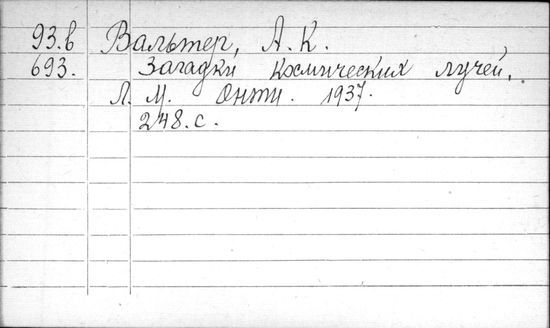 93.в Вальтер, А. К.
693. Загадки космических лучей.
Л. М. Онти. 1937.
248. с.